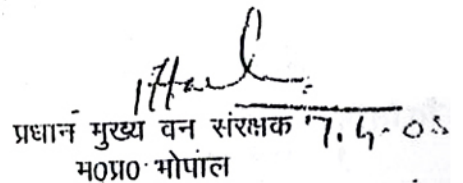 प्रधान मुख्य वन संरक्षक 7.4.05
म0प्र0 भोपाल